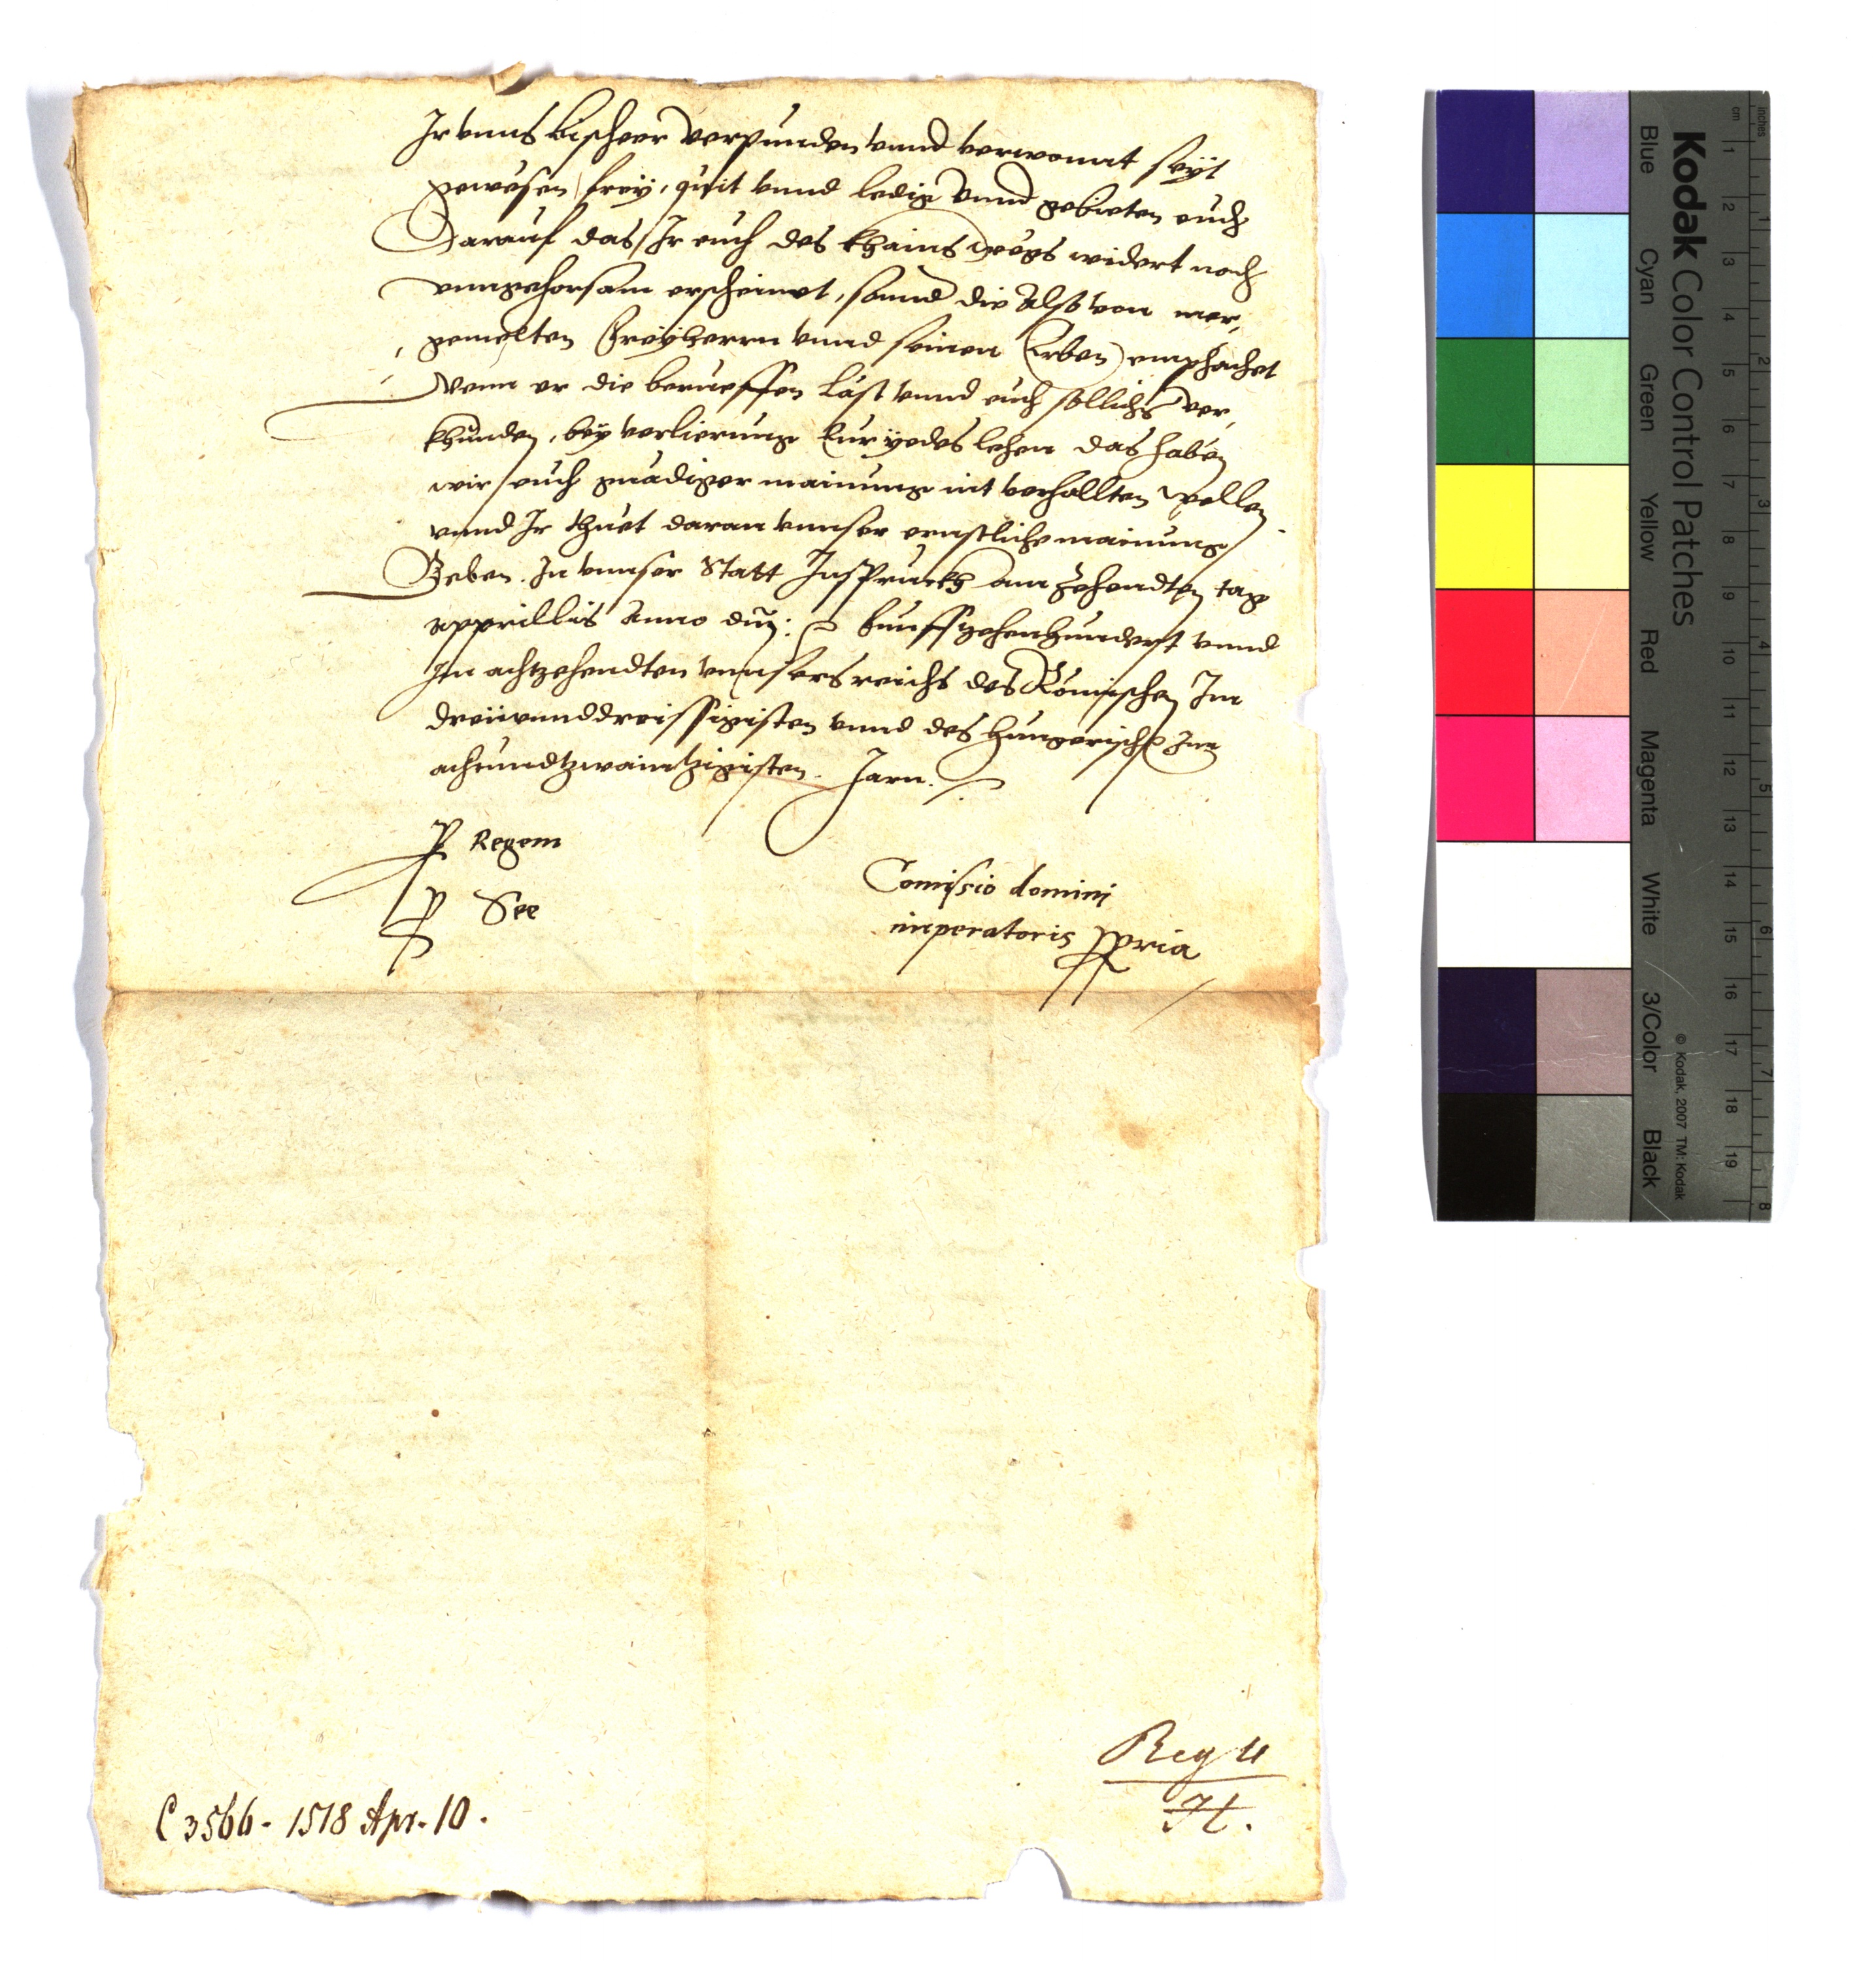 Ir vnns bisheer verpunden vnnd verwonnt seyt
gewesen frey, quit vnnd ledig vnnd gebieten euch
Darauf das Ir euch des khains wegs widert noch
vnngehorsam erscheinet, sonnd die Also von mer,
gemelten Freyherrn vnnd seinen Erben emphahet
Wenn er die berueffen last vnnd euch sollichs ver,
khunden, bey verlierung Eur yedes lehen das haben
wir euch gnadiger mainung nit verhallten wellen
vnnd Ir thuet daran vnnser ernstliche mainung
Geben. In vnnser Statt Insprugkh am Zehendten tag
apprillis Anno dnj: funffzehenhundert vnnd
Im achtzehendten vnnsers reichs des Römischen Im
dreiunnddreissigisten vnnd des hungerisch Im
achtundtzwaintzigisten. Jarn.
P Regem
P See
Comissio domini
imperatoris ppria
Reg U
H.
C 3566 - 1518 Apr. 10.
Kodak Color Control Patches
Blue Cyan Green Yellow Red Magenta White 3/Color Black
© Kodak, 2007 TM: Kodak
cm 1 2 3 4 5 6 7 8 9 10 11 12 13 14 15 16 17 18 19
inches 1 2 3 4 5 6 7 8